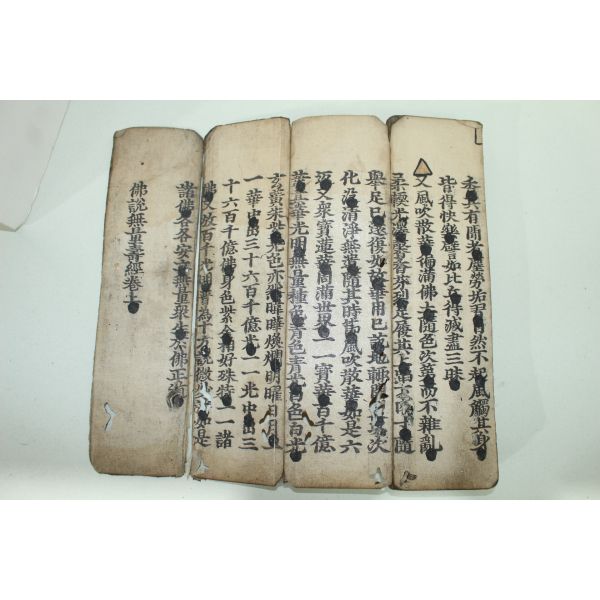 香其有聞者塵勞垢習自然不起風觸其身
皆得快樂譬如比丘得滅盡三昧
又風吹散華徧滿佛土隨色次第而不雜亂
柔輭光澤馨香芬烈足履其上陷下四寸隨
舉足已還復如故華用已訖地輒開裂以次
化沒清淨無遺隨其時節風吹散華如是六
返又衆寶蓮華周滿世界一一寶華百千億
葉其華光明無量種色青色青光白色白光
玄黃朱紫光色亦然暐曄煥爛明曜日月一
一華中出三十六百千億光一一光中出三
十六百千億佛身色紫金相好殊特一一諸
佛又放百千光明普為十方說微妙法如是
諸佛各各安立無量衆生於佛正道
佛說無量壽經卷上